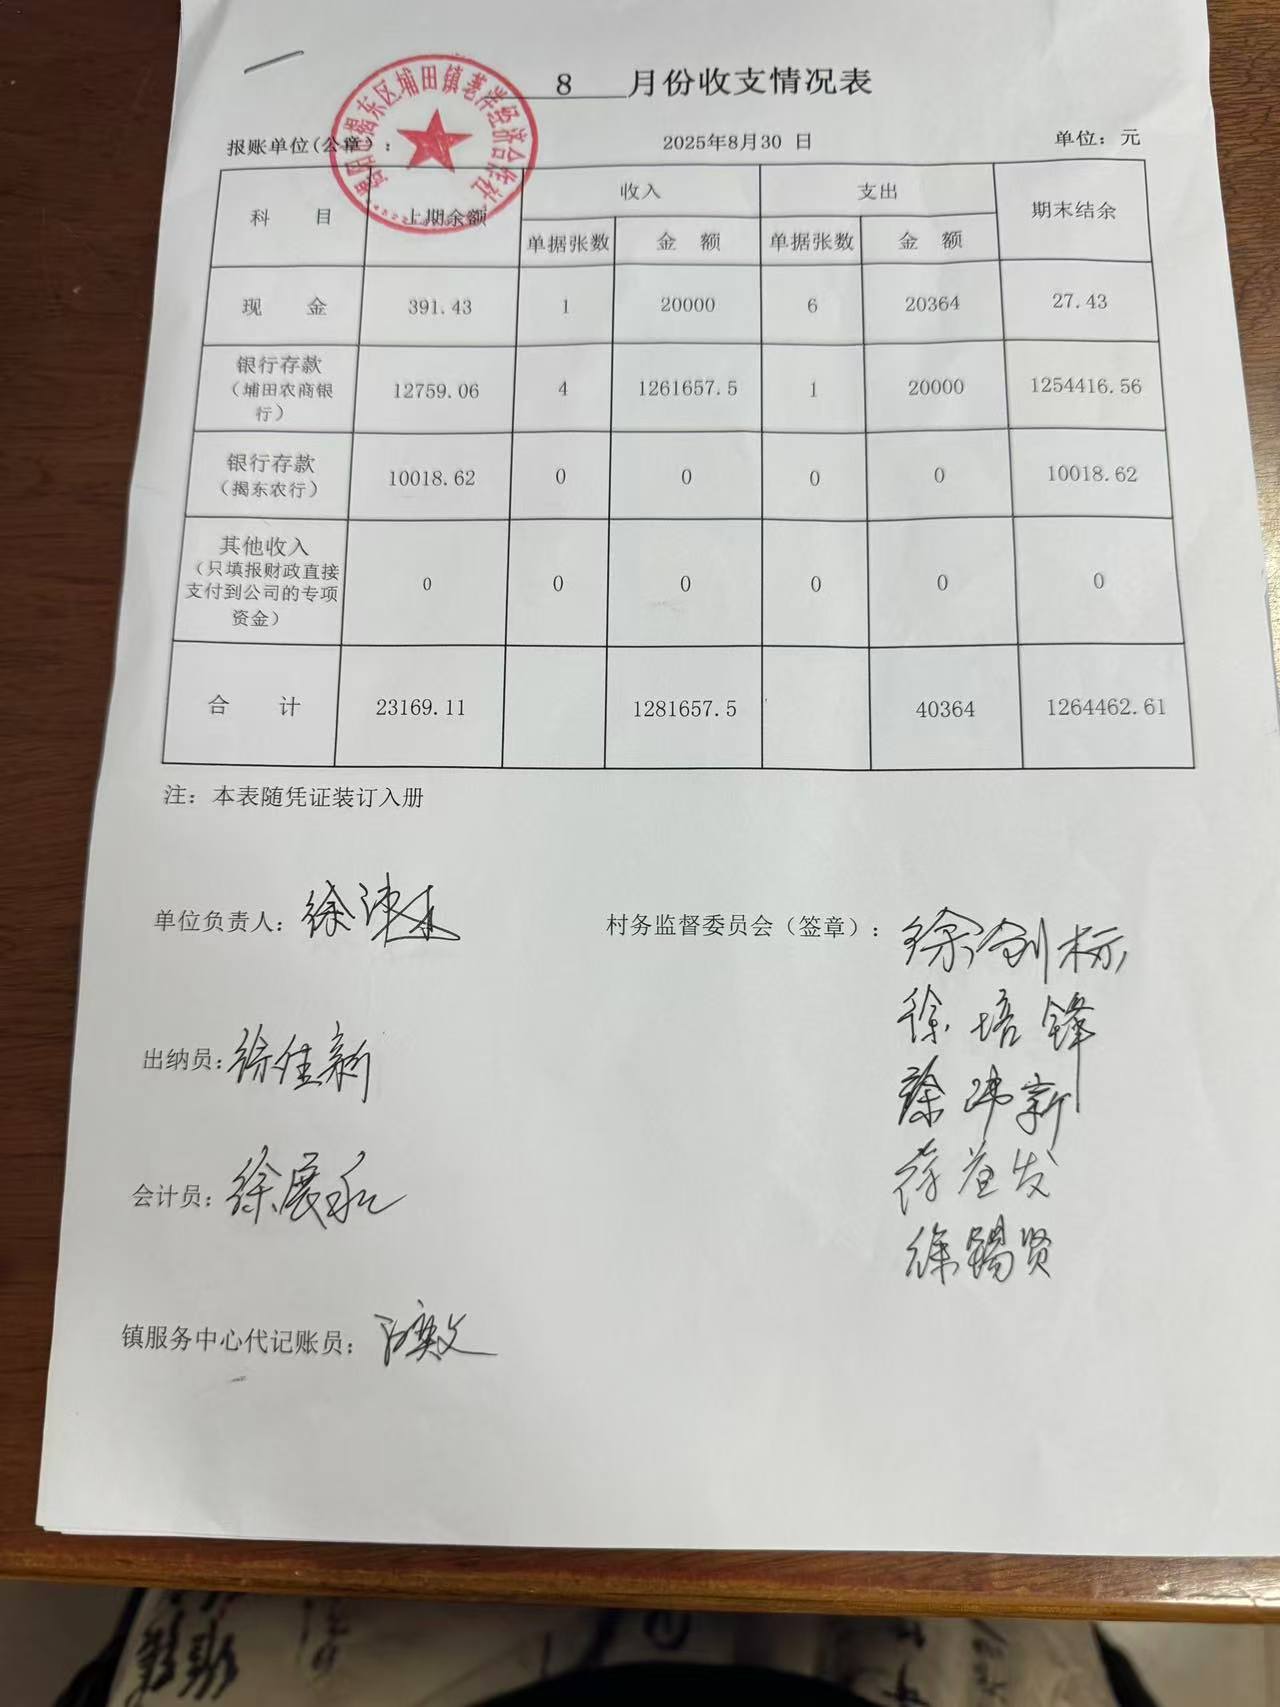 8 月份收支情况表
报账单位(公章): 2025年8月30 日 单位: 元
揭东区埔田镇老洋经济合作社
科 目 上期余额 收入 支出 期末结余
单据张数 金 额 单据张数 金 额
现 金 391.43 1 20000 6 20364 27.43
银行存款
(埔田农商银
行) 12759.06 4 1261657.5 1 20000 1254416.56
银行存款
(揭东农行) 10018.62 0 0 0 0 10018.62
其他收入
(只填报财政直接
支付到公司的专项
资金) 0 0 0 0 0 0
合 计 23169.11 1281657.5 40364 1264462.61
注: 本表随凭证装订入册
单位负责人: 徐
村务监督委员会(签章): 徐剑标
徐培锋
徐沛新
徐益发
徐锡贤
出纳员: 徐佳新
会计员: 徐展
镇服务中心代记账员: